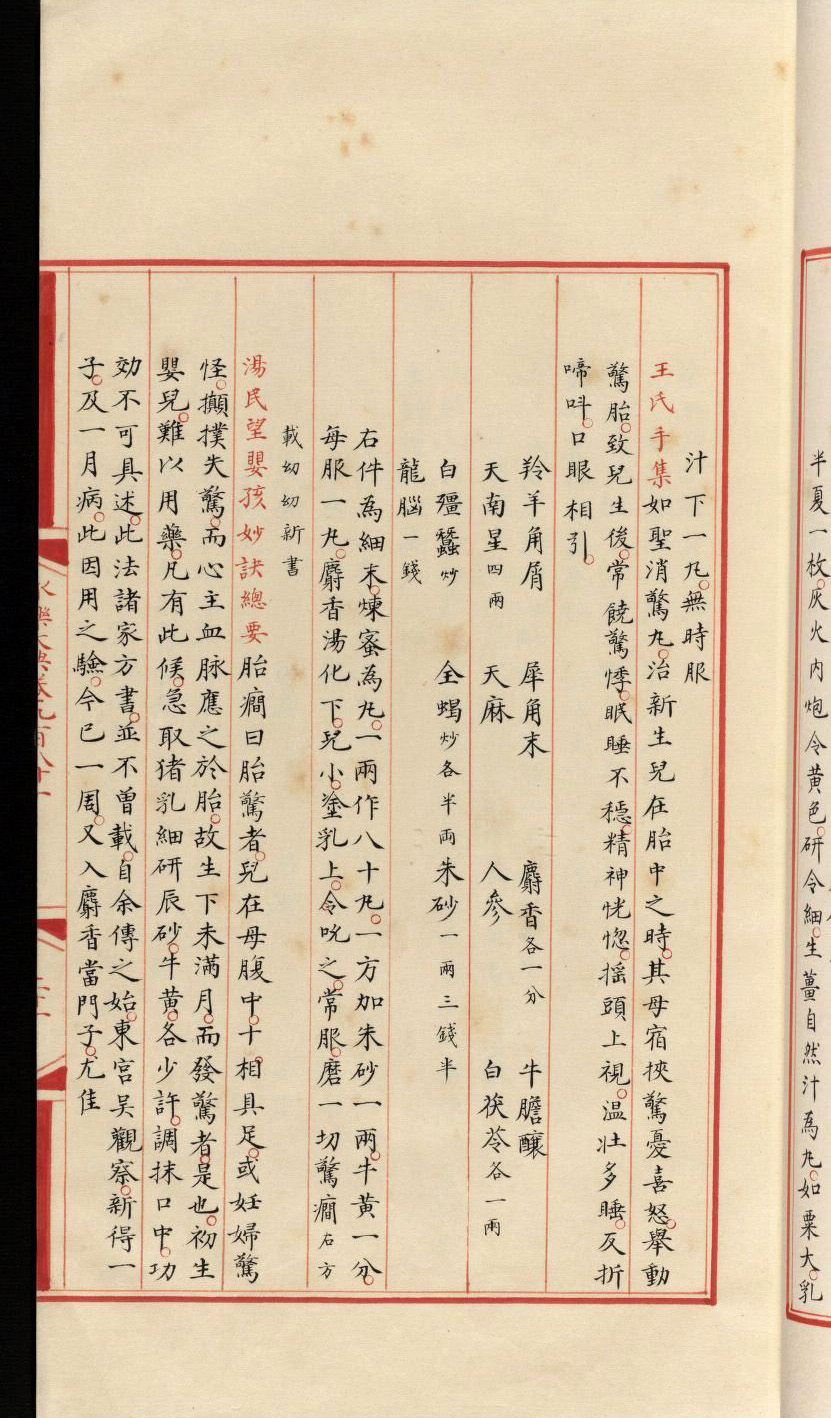 半夏一枚。灰火內炮令黃色。研令細。生薑自然汁為丸。如粟大。乳
汁下一丸。無時服
王氏手集如聖消驚丸。治新生兒在胎中之時。其母宿挾驚憂喜怒。舉動
驚胎。致兒生後。常饒驚悸。眠睡不穩。精神恍惚。搖頭上視。溫壯多睡。反折
啼呌。口眼相引。
羚羊角屑 犀角末 麝香各一分 牛膽釀
天南星四兩 天麻 人參 白茯苓各一兩
白殭蠶炒 全蝎炒各半兩 朱砂一兩三錢半
龍腦一錢
右件為細末。煉蜜為丸。一兩作八十丸。一方加朱砂一兩。牛黃一分。
每服一丸。麝香湯化下。兒小。塗乳上。令吮之。常服。磨一切驚癇右方
載幼幼新書
湯民望嬰孩妙訣總要胎癇曰胎驚者。兒在母腹中。十相具足。或妊婦驚
怪。攧撲失驚。而心主血脉應之於胎。故生下未滿月。而發驚者。是也。初生
嬰兒。難以用藥。凡有此候。急取猪乳細研辰砂。牛黃。各少許。調抹口中。功
効不可具述。此法諸家方書。並不曾載。自余傳之始。東宮吳觀察。新得一
子。及一月病。此因用之驗。今已一周。又入麝香當門子。尤佳
永樂大典卷九百八十一